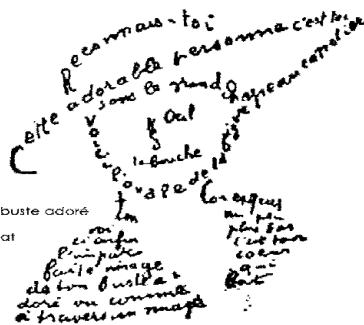 Reconnais-toi
Cette adorable personne c'est toi
sous le grand chapeau canotier
Oeil
la bouche
Voici l'ovale de ta figure
ton
cou exquis
buste adoré
at
voi
ci enfin
l'impar
faite image
de ton buste a
doré vu comme
à travers un nuage
un peu
plus bas
c'est ton
coeur
qui
bat